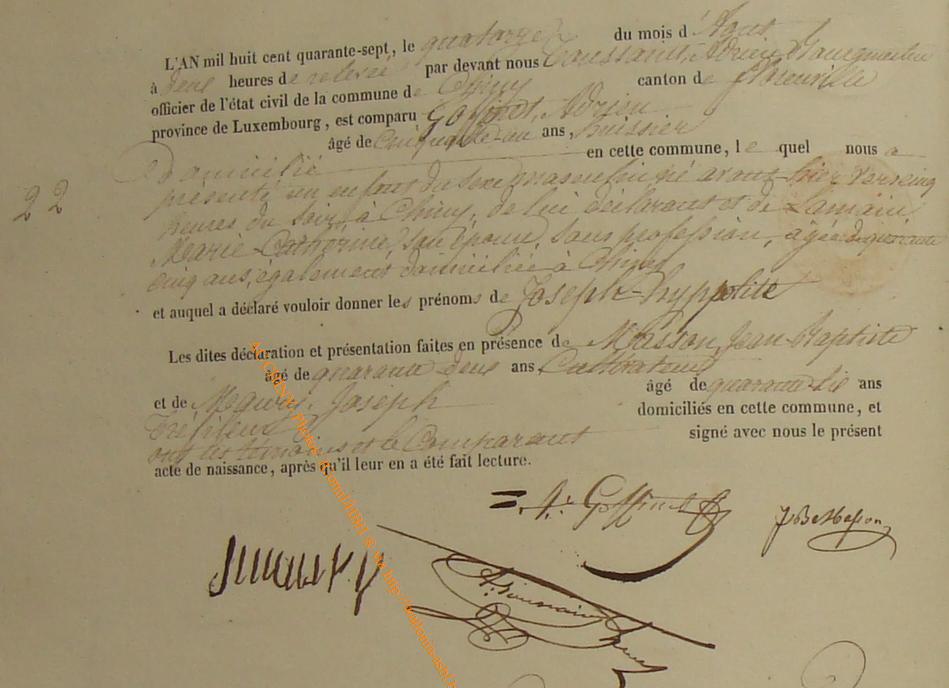 L'AN mil huit cent quarante-sept, le quatorze du mois d'Aout
à deux heures de relevée par devant nous Toussaint, Adrien Bourgmestre
officier de l'état civil de la commune de Chiny canton de Florenville
province de Luxembourg, est comparu Goffinet, Adrien
âgé de Cinquante-un ans, huissier
Domicilié en cette commune, le quel nous a
22
présenté un enfant du sexe masculin né avant-hier vers cinq
heures du soir, à Chiny, de lui déclarant et de Lamain
Marie Catherine, son épouse, sans profession, agée de quarante
cinq ans, également domiciliée à Chiny
et auquel a déclaré vouloir donner les prénoms de Joseph-hyppolite
Les dites déclaration et présentation faites en présence de Masson, Jean Baptiste
âgé de quarante deux ans Cultivateur
et de Joseph âgé de quarante-six ans
domiciliés en cette commune, et
ont les témoins et le Comparant signé avec nous le présent
acte de naissance, après qu'il leur en a été fait lecture.
A: Goffinet
JBte Masson
A. Toussaint